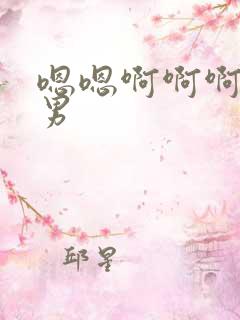 嗯嗯啊啊啊
男
邱星